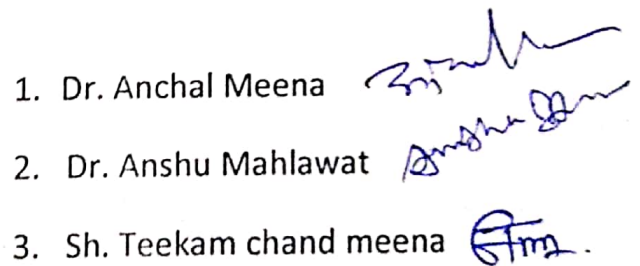 1. Dr. Anchal Meena
2. Dr. Anshu Mahlawat
3. Sh. Teekam chand meena